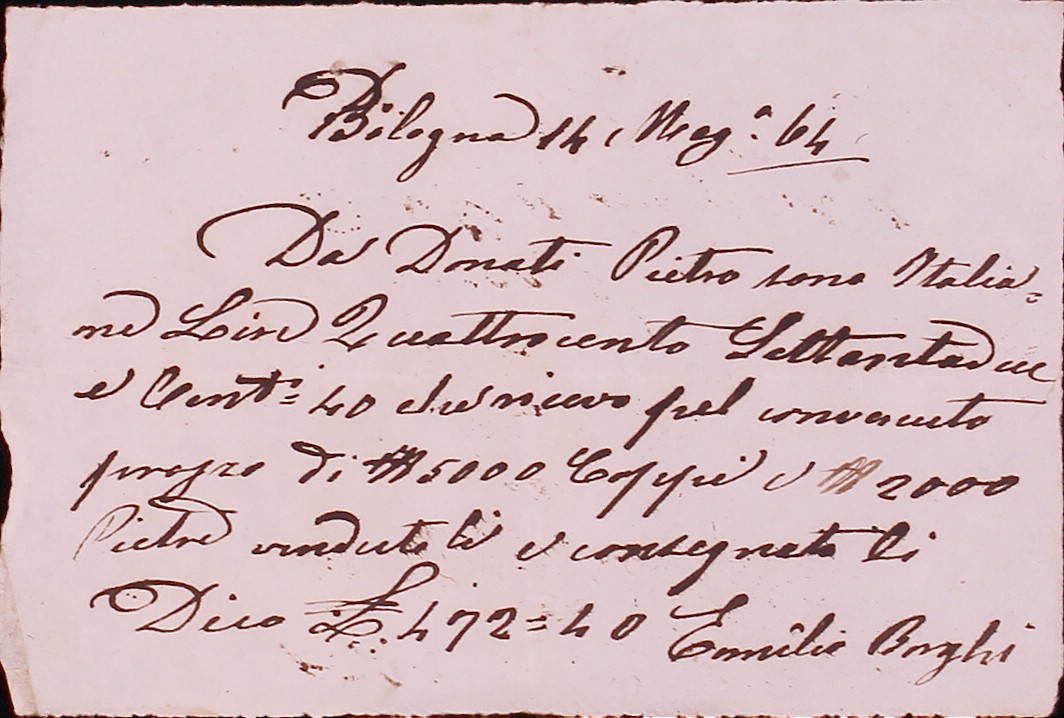 Bologna 14 Mag.º 64
Da Donati Pietro sono Italia=
ne Lire Quattrocento Settantadue
e Cent.i= 40 che ricevo pel convenuto
prezzo di N 5000 Coppi e N 2000
Pietre vendute li e consegnate li
Dico It. L. 472=40 Emilio Borghi